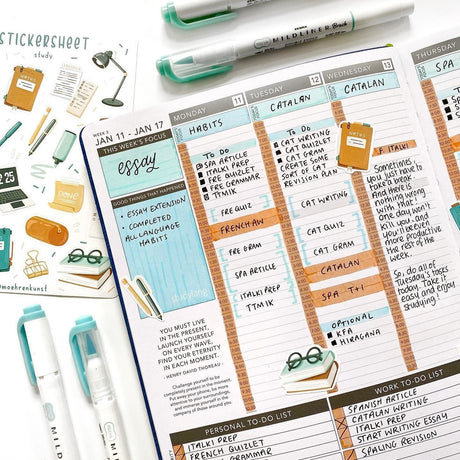 STICKERSHEET
study
NOTES
@moehrenkunst
ZEBRA
MILDLINER Brush
MILDLI
WEEK 3
JAN 11 - JAN 17
THIS WEEK'S FOCUS
essay
GOOD THINGS THAT HAPPENED
• ESSAY EXTENSION
• COMPLETED
ALL LANGUAGE
HABITS
studytang
YOU MUST LIVE
IN THE PRESENT,
LAUNCH YOURSELF
ON EVERY WAVE,
FIND YOUR ETERNITY
IN EACH MOMENT.
- HENRY DAVID THOREAU -
Challenge yourself to be
completely present in the moment.
Put away your phone, be more
attentive to your surroundings,
and immerse yourself in the
company of those around you.
MONDAY 11
HABITS
TO DO
SPA ARTICLE
ITALKI PREP
FRE QUIZLET
FRE GRAMMAR
TTMIK
FRE QUIZ
FRENCH AW
FRE GRAM
SPA ARTICLE
ITALKI PREP
TTMIK
TUESDAY 12
CATALAN
TO DO
CAT WRITING
CAT QUIZLET
CAT GRAM
CREATE SOME
SORT OF CAT
REVISION PLAN
CAT WRITING
CAT QUIZ
CAT GRAM
CATALAN
SPA T+I
OPTIONAL
KFA
HIRAGANA
WEDNESDAY 13
CATALAN
NOTES
F ITALKI
Sometimes
you just have to
take a break.
And there is
nothing wrong
with that!
One day won't
kill you, and
you'll be even
more productive
the rest of the
week.
So, do all of
Tuesday's tasks
today. Take it
easy and enjoy
studying!
THURSDAY
SPA
PERSONAL TO-DO LIST
ITALKI PREP
FRENCH QUIZLET
GRAMMAR
WORK TO-DO LIST
SPANISH ARTICLE
CATALAN WRITING
ITALKI PREP
START WRITING ESSAY
SPALING REVISION